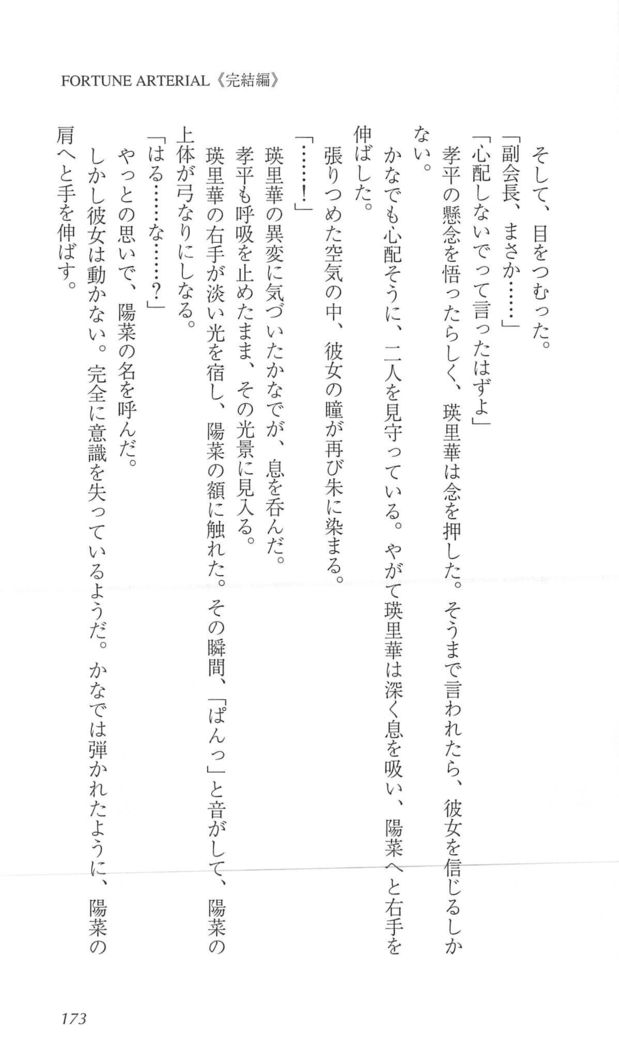 FORTUNE ARTERIAL《完結編》
そして、目をつむった。
「副会長、まさか……」
「心配しないでって言ったはずよ」
孝平の懸念を悟ったらしく、瑛里華は念を押した。そうまで言われたら、彼女を信じるしか
ない。
かなでも心配そうに、二人を見守っている。やがて瑛里華は深く息を吸い、陽菜へと右手を
伸ばした。
張りつめた空気の中、彼女の瞳が再び朱に染まる。
「……！」
瑛里華の異変に気づいたかなでが、息を呑んだ。
孝平も呼吸を止めたまま、その光景に見入る。
瑛里華の右手が淡い光を宿し、陽菜の額に触れた。その瞬間、「ぱんっ」と音がして、陽菜の
上体が弓なりにしなる。
「はる……な……？」
やっとの思いで、陽菜の名を呼んだ。
しかし彼女は動かない。完全に意識を失っているようだ。かなでは弾かれたように、陽菜の
肩へと手を伸ばす。
173